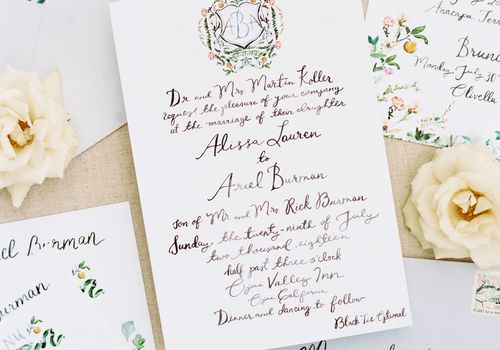 ABA
Dr. and Mrs. Martin Koller
request the pleasure of your company
at the marriage of their daughter
Alissa Lauren
to
Ariel Burman
son of Mr and Mrs Rick Burman
Sunday the twenty-ninth of July
two thousand eighteen
half past three o'clock
Ojai Valley Inn
Ojai California
Dinner and dancing to follow
Black Tie Optional
Anacapa Terr
Brun
Monday July 3
Olivell
el Burman
Burman